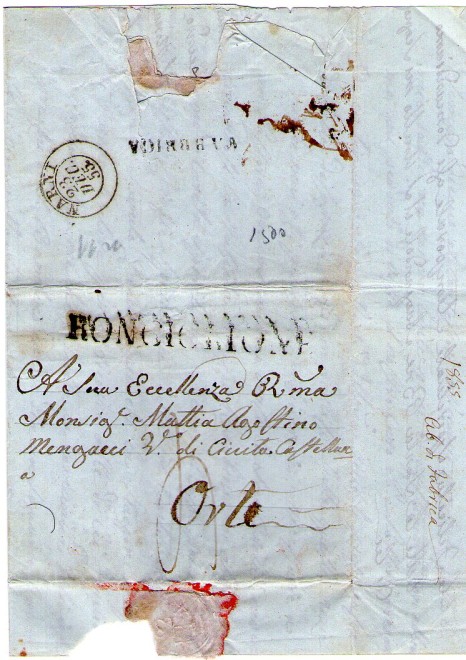 FABBRICA
NARNI
23
DEC
55
1500
RONCIGLIONE
A Sua Eccellenza Rma
Monsigr. Mattia Agostino
Mengacci V. di Civita Castellana
a
Orte
1855
Ab di Fabrica